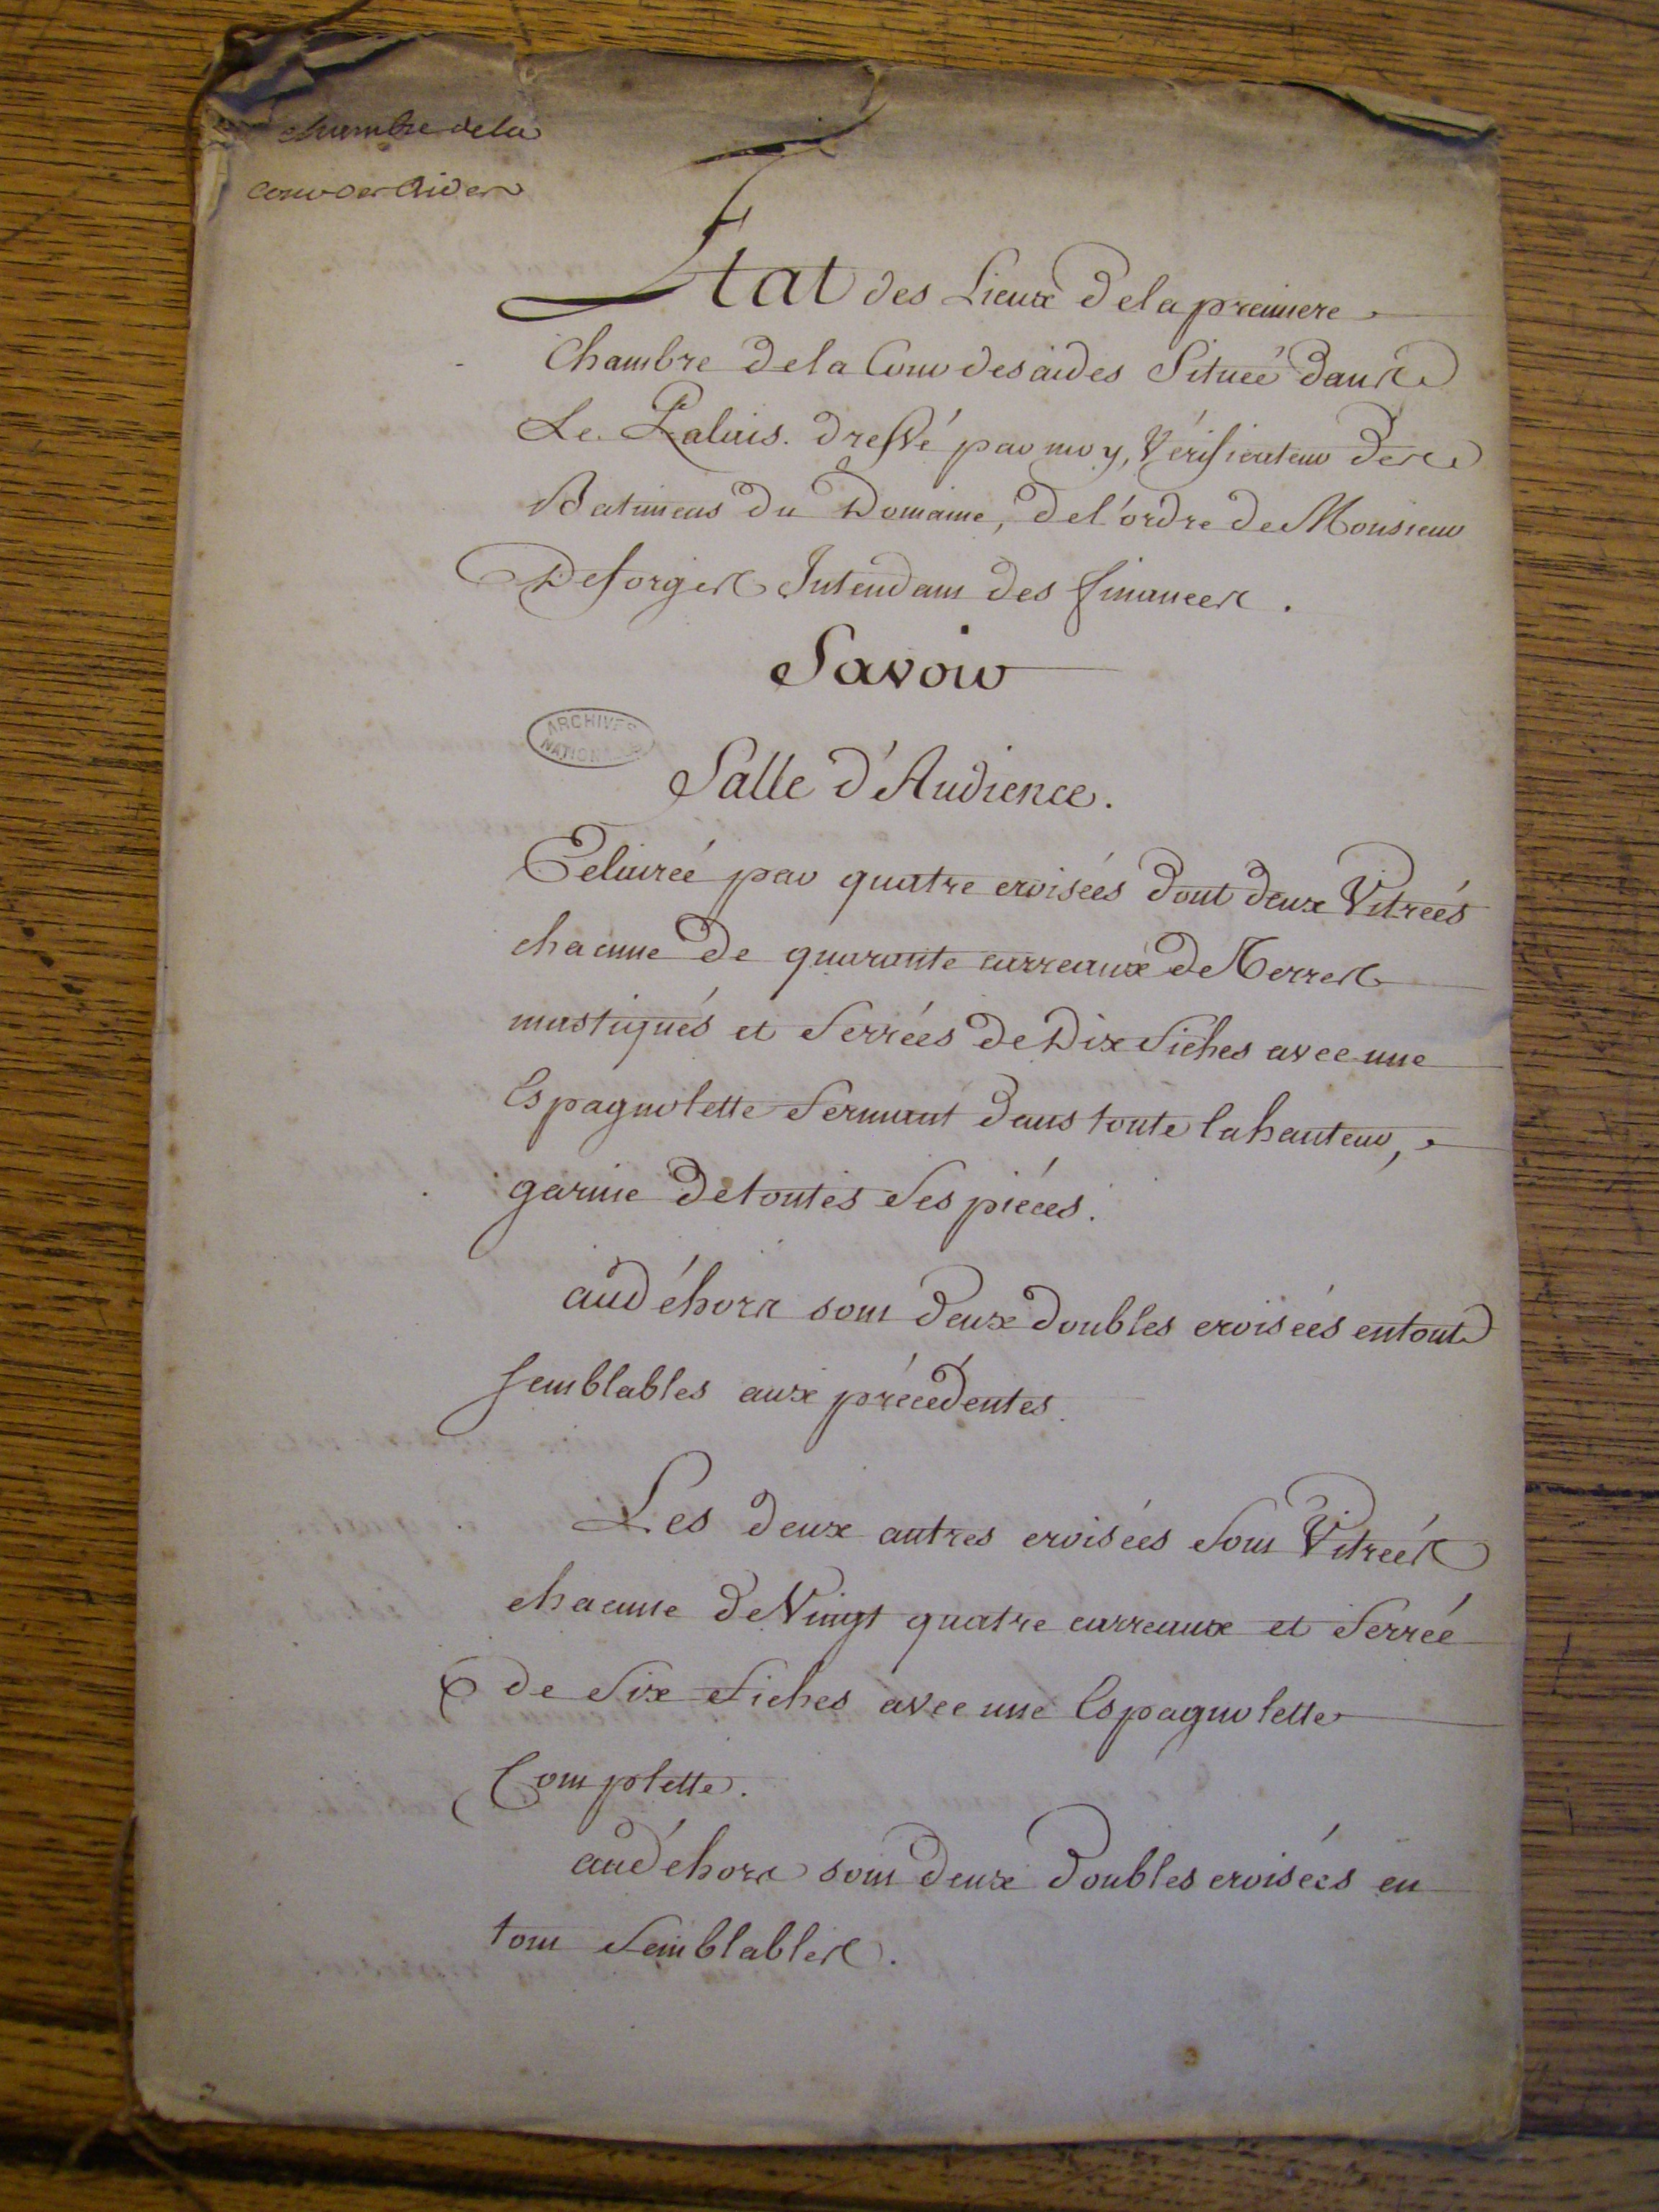 chambre de la
cour des Aides
Etat des Lieux de la premiere
Chambre de la Cour des aides Situeé dans
Le Palais. dressé par moy, Vérificateur des
Batimens du Domaine, de l'ordre de Monsieur
Deforges Intendant des finances.
Savoir
ARCHIVES
NATIONALES
Salle d'Audience.
Eclaireé par quatre croiseés dont deux Vitreés
chacune de quarante carreaux de Verres
mastiqués et ferrées de Dix fiches avec une
Espagnolette fermant dans toute la hauteur,
garnie de toutes ses piéces.
au déhors sont deux doubles croiseés en tout
semblables aux précédentes.
Les deux autres croiseés sont Vitreés
chacune de Vingt quatre carreaux et ferreé
de six fiches avec une Espagnolette
Complette.
au déhors sont deux doubles croiseés en
tout semblables.